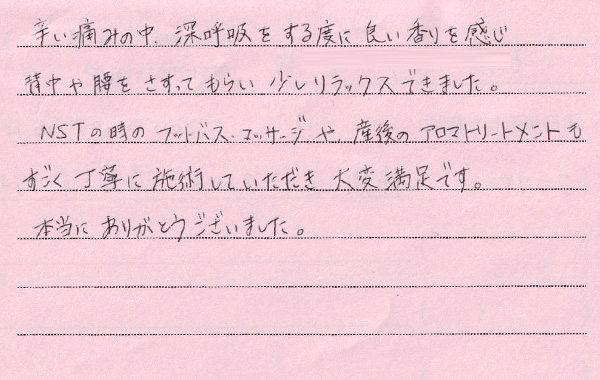 辛い痛みの中、深呼吸をする度に良い香りを感じ
背中や腰をさすってもらい少しリラックスできました。
NSTの時のフットバス・マッサージや、産後のアロマトリートメントも
すごく丁寧に施術していただき大変満足です。
本当にありがとうございました。